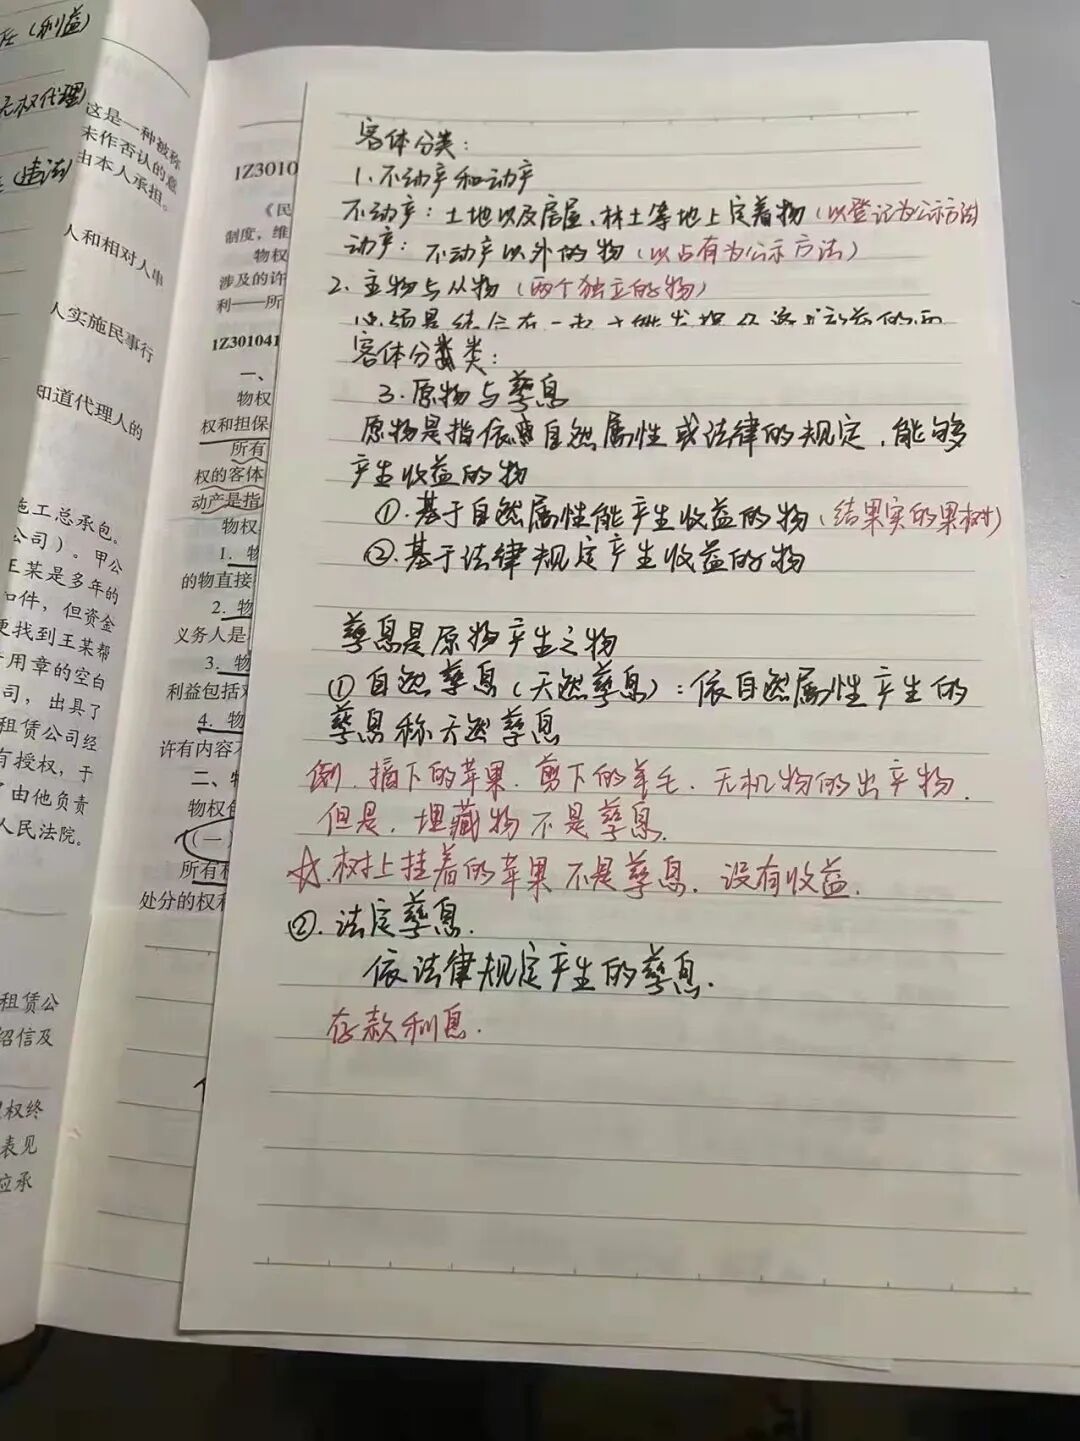 任（利益）
无权代理）
（违法）
这是一种被称
未作否认的意
由本人承担。
人和相对人串
人实施民事行
知道代理人的
施工总承包。
公司）。甲公
王某是多年的
扣件，但资金
便找到王某帮
用章的空白
司，出具了
租赁公司经
有授权，于
由他负责
人民法院。
租赁公
绍信及
权终
表见
应承
1Z3010
《民
制度，维
物权
涉及的许
利——所
1Z301041
一、
物权
权和担保
所有
权的客体
动产是指
物权
1. 物
的物直接
2. 物
义务人是
3. 物
利益包括对
4. 物
许有内容不
二、物
物权包
（一
所有权
处分的权利
客体分类：
1、不动产和动产
不动产：土地以及房屋、林土等地上定着物（以登记为公示方法
动产：不动产以外的物（以占有为公示方法）
2、主物与从物（两个独立的物）
客体分类：
3、原物与孳息
原物是指依自然属性或法律的规定，能够
产生收益的物
①.基于自然属性能产生收益的物（结果实的果树）
②.基于法律规定产生收益的物
孳息是原物产生之物
①自然孳息（天然孳息）：依自然属性产生的
孳息称天然孳息
例．摘下的苹果．剪下的羊毛．无机物的出产物．
但是．埋藏物不是孳息．
☆．树上挂着的苹果不是孳息．没有收益．
②．法定孳息．
依法律规定产生的孳息．
存款利息．